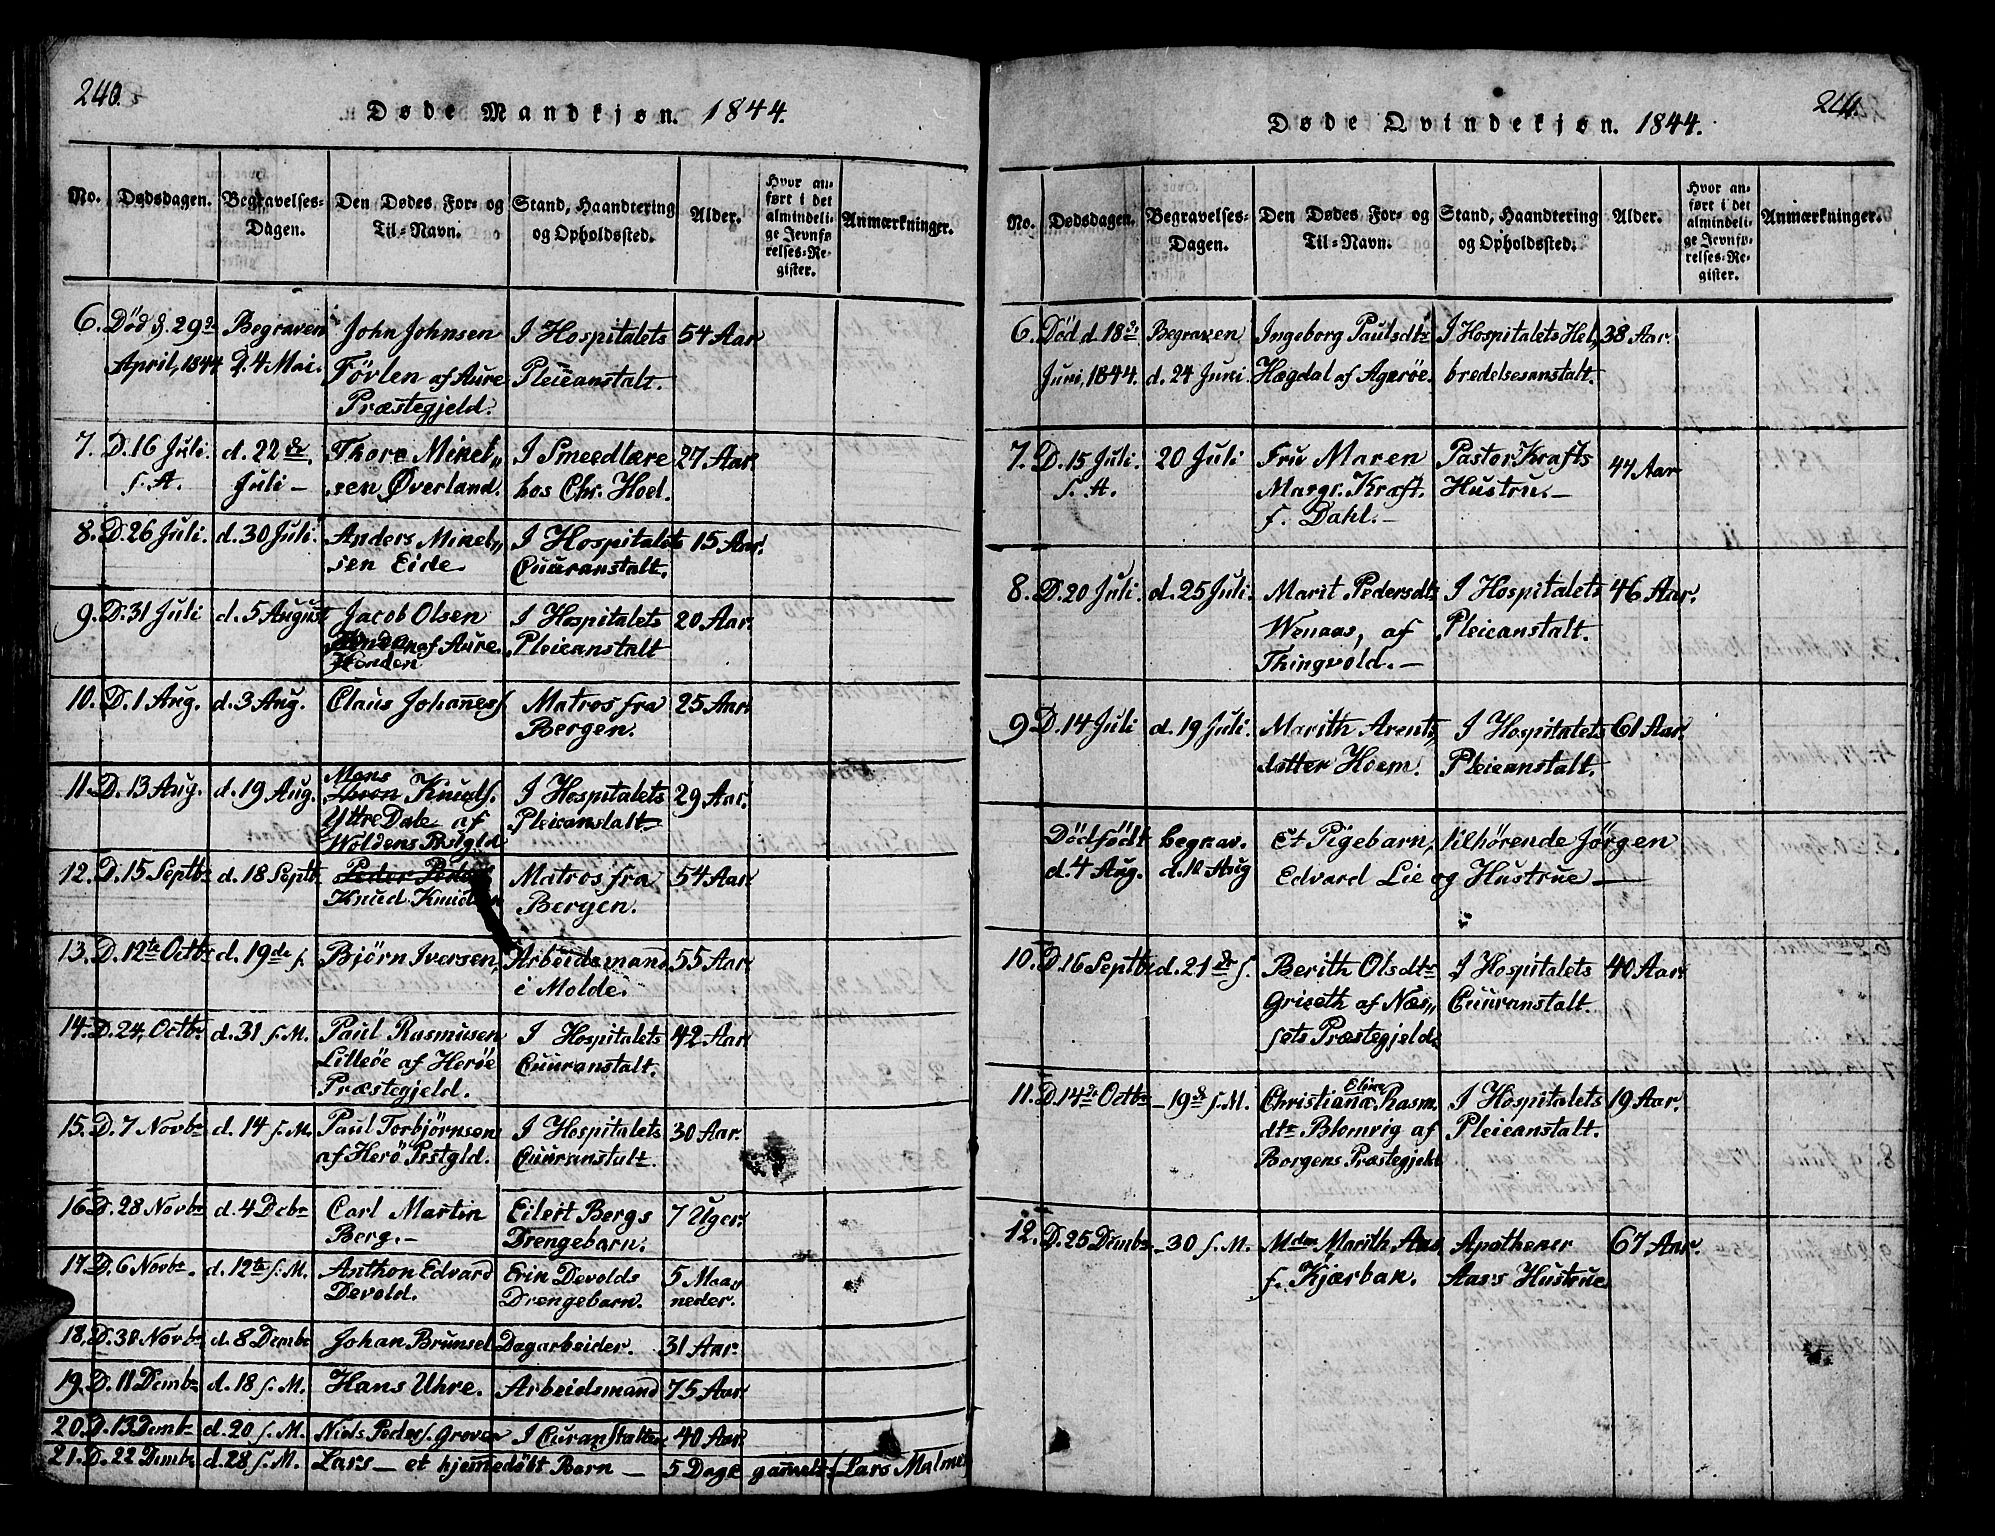 240.
Døde Mandkjøn. 1844.
No. Dødsdagen. Begravelses-Dagen. Den Dødes For- og Til-Navn. Stand, Haandtering og Opholdssted. Alder. Hvor anført i det almindelige Jevnførelses-Register. Anmærkninger.
6. Død d. 29de Begraven John Johnsen I Hospitalets 54 Aar
April, 1844 d. 4 Mai. Føvlen af Aure Pleieanstalt.
Præstegjeld.
7. D. 16 Juli. d. 22de Thore Mikel„ I Smeedlære 27 Aar
s. A. Juli – sen Øverland. hos Chr. Hoel.
8. D. 26 Juli. d. 30 Juli. Anders Mikel„ I Hospitalets 15 Aar.
sen Eide. Cuuranstalt.
9. D. 31 Juli d. 5 August Jacob Olsen I Hospitalets 20 Aar.
af Aure. Pleieanstalt
Kenden
10. D. 1 Aug. d. 3 Aug. Claus Johanes. Matros fra 25 Aar.
Bergen.
Mons
11. D. 13 Aug. d. 19 Aug. Knuds. I Hospitalets 29 Aar.
Yttre Dale af Pleieanstalt
Woldens Pstgld
12. D. 15 Septbr d. 18 Septb. Peder Matros fra 54 Aar.
Knud Knudsen Bergen.
13. D. 12te Octbr d. 19de s. Bjørn Iversen, Arbeidsmand 55 Aar.
i Molde.
14. D. 24, Octbr d. 31 s. M. Paul Rasmusen I Hospitalets 42 Aar.
Lilleöe af Heröe Cuuranstalt.
Præstegjeld.
15. D. 7 Novbr d. 14 s. M. Paul Torbjörnsen I Hospitalets 30 Aar.
af Herö Pstgld. Cuuranstalt.
16. D. 28 Novbr d. 4 Debr Carl Martin Eilert Bergs 7 Uger.
Berg.– Drengebarn.
17. D. 6 Novbr. d. 12te s. M. Anthon Edvard Erin Devolds 5 Maa„
Devold. Drengebarn. neder.
18. D. 30 Novbr d. 8 Dembr Johan Brunsel Dagarbeider. 31 Aar.
19. D. 11 Dembr d. 18 s. M. Hans Uhre. Arbeidsmand 75 Aar.
20. D. 13 Dembr d. 20 s. M. Niels Peders. Grover I Curanstalten 40 Aar.
21. D. 22 Dembr d. 28 s. M. Lars – et hjemedøbt Barn – 5 Dage gamelt. (Lars Malme
241.
Døde Qvindekjøn. 1844.
No. Dødsdagen. Begravelses-Dagen. Den Dødes For- og Til-Navn. Stand, Haandtering og Opholdssted. Alder. Hvor anført i det almindelige Jevnførelses-Register. Anmærkninger.
6. Död d. 18de Begraven Ingeborg Paulsdtr I Hospitalets Hel„ 38 Aar.
Juni, 1844. d. 24 Juni. Hægdal af Ageröe. bredelsesanstalt.
7. D. 15 Juli. 20 Juli Fru Maren Pastor Krafts 44 Aar
s. A. Margr. Kraft. Hustru. –
f. Dahl. –
8. D. 20 Juli. d. 25 Juli. Marit Pedersdtr I Hospitalets 46 Aar.
Wenaas, af Pleieanstalt.
Thingvold. –
9 D. 14 Juli d. 19 Juli. Marith Arents„ I Hospitalets 61 Aar.
dotter Hoem. Pleieanstalt.
Dödfödt begrav. Et Pigebarn, tilhörende Jörgen
d. 4 Aug. d. 12 Aug Edvard Lie og Hustrue –
10. D. 16 Septbr d. 21de s. Berith Olsdtr I Hospitalets 40 Aar.
Griseth af Næs„ Cuuranstalt.
sets Præstegjeld.
Eline
11. D. 14de Octbr – 19de s. M. Christiana Rasm. I Hospitalets 19 Aar.
dtr Blomvig af Pleieanstalt.
Borgens Præstegjeld
12. D. 25 Dembr – 30 s. M. Mdm Marith Aas Apotheker 67 Aar.
f. Kjærbau. Aas's Hustrue